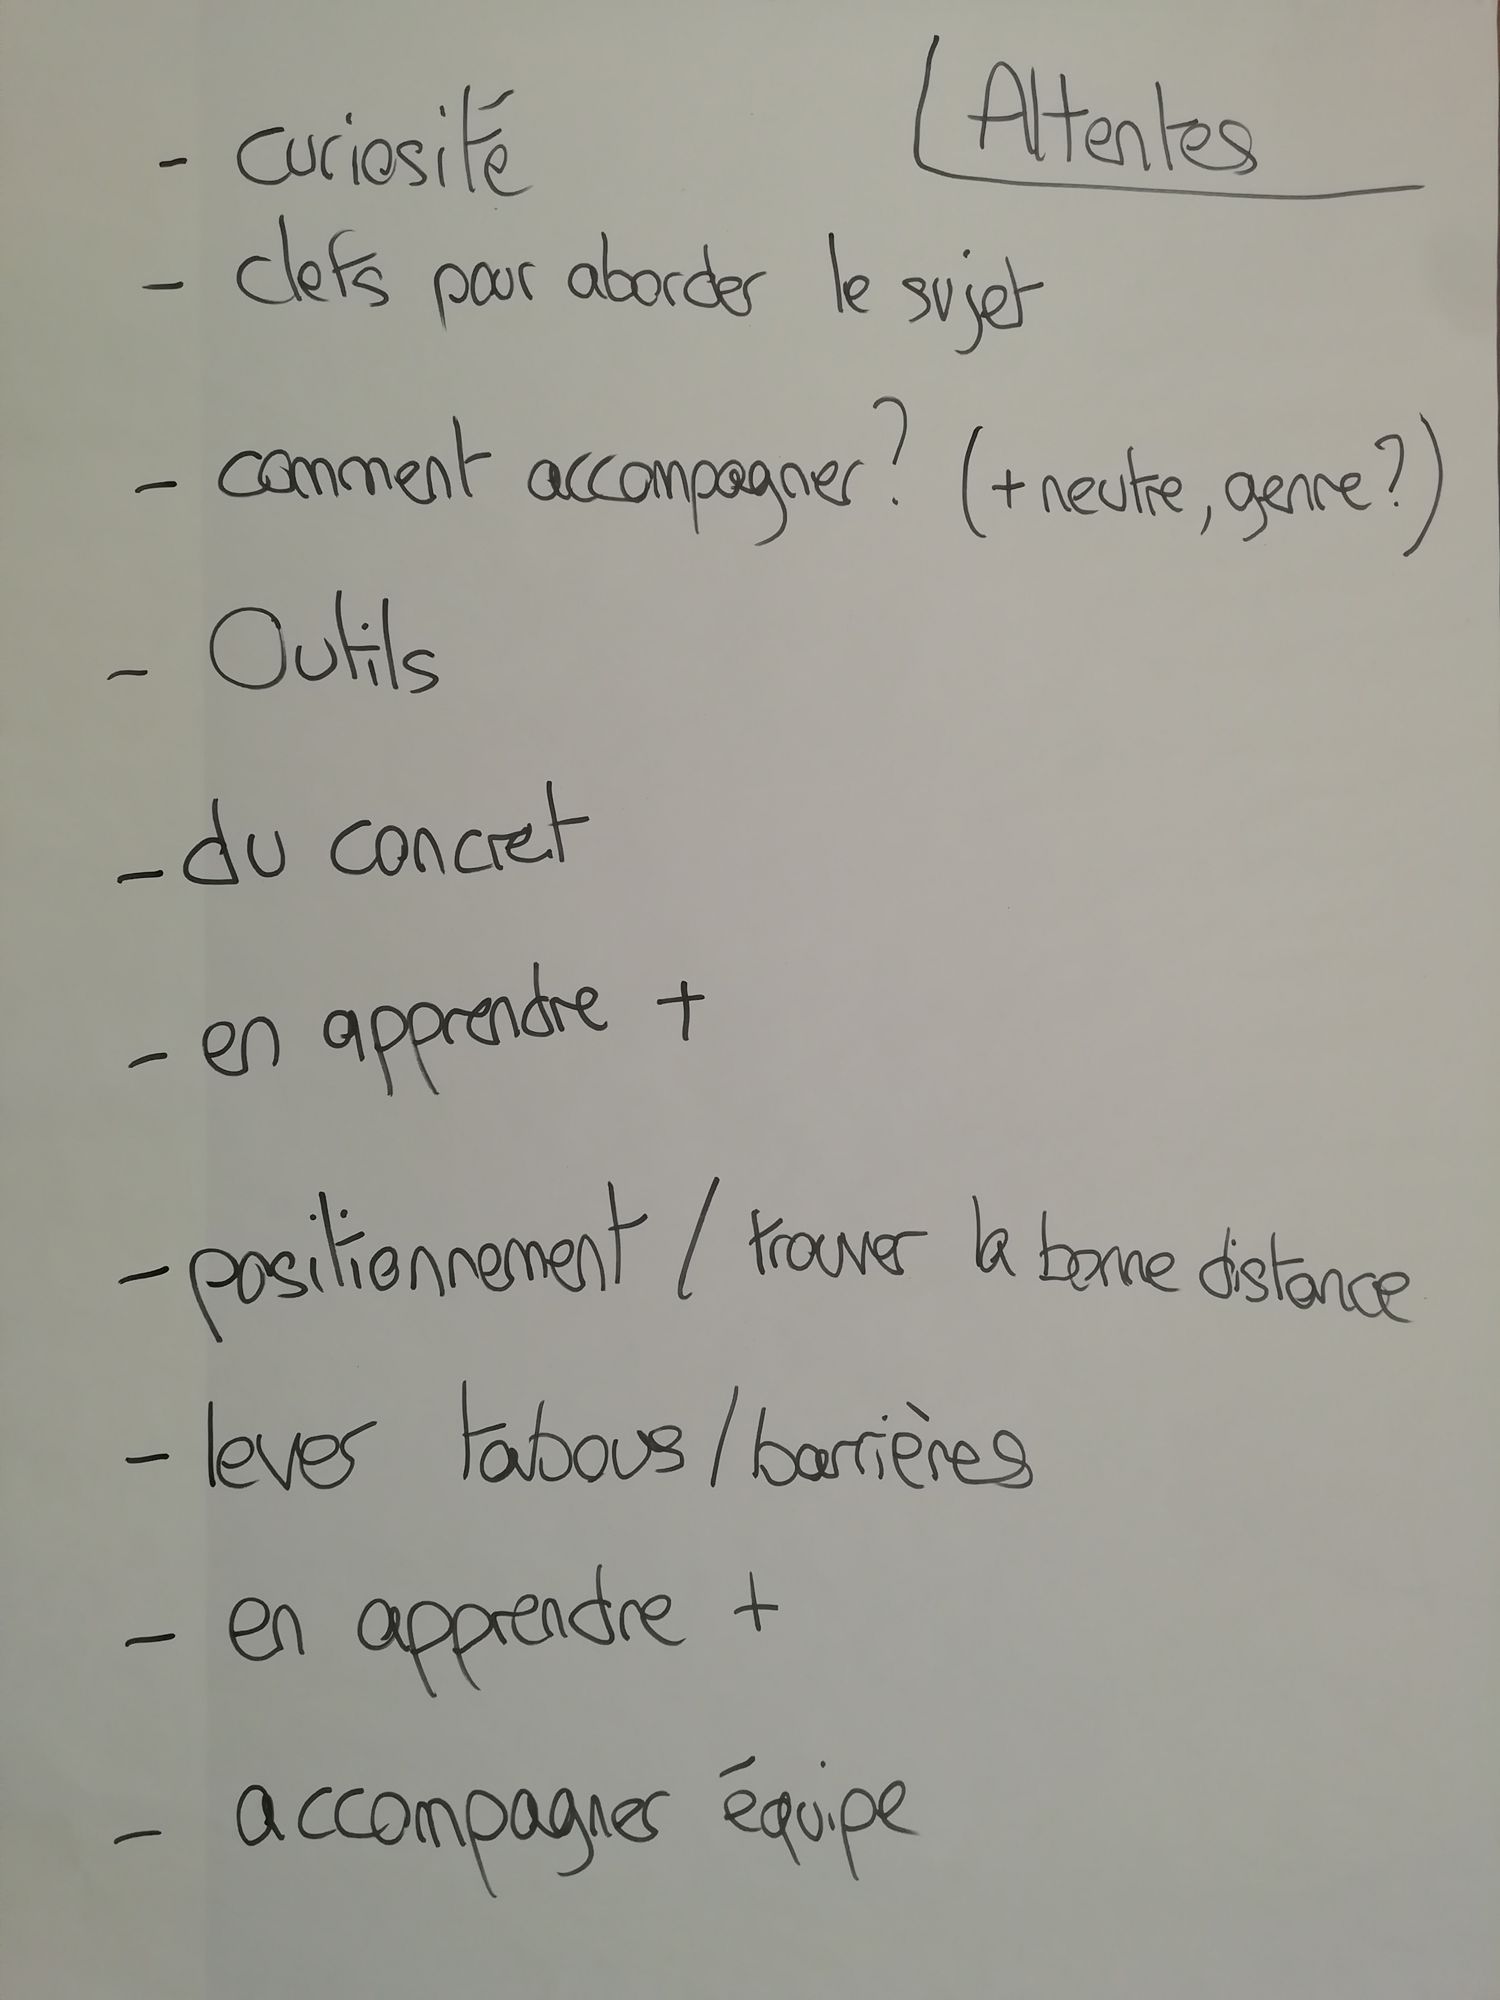 Attentes
- curiosité
- clefs pour aborder le sujet
- comment accompagner? (+ neutre, genre?)
- Outils
- du concret
- en apprendre +
- positionnement / trouver la bonne distance
- lever tabous/barrières
- en apprendre +
- accompagner équipe